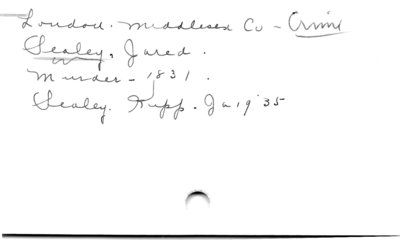 London. Middlesex Co - Crime
Sealey, Jared.
Murder - 1831.
Sealey. Supp. Ja 19 '35